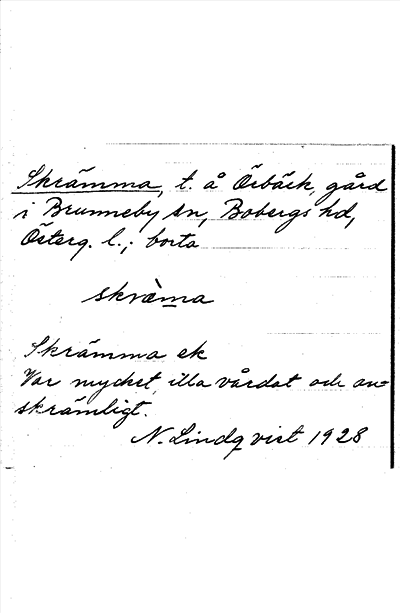 Skrämma, t. å Örbäck, gård
i Brunneby sn, Bobergs hd,
Österg. l.; borta
skræ̀ma
Skrämma ek
Var mycket illa vårdat och an=
skrämligt.
N. Lindqvist 1928